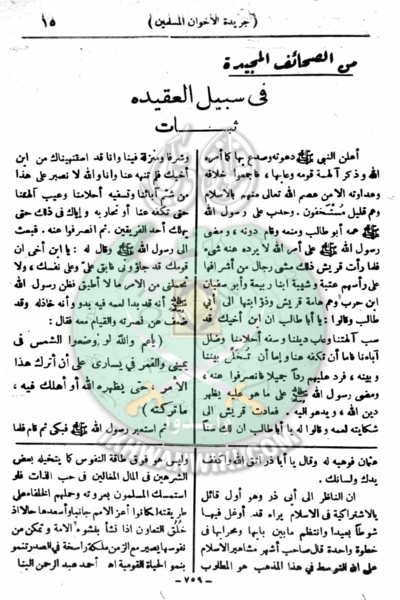 ( جريدة الأخوان المسلمين )
١٥
من الصحائف المجيدة
فى سبيل العقيده
ثبـــات
أعلن النبى ﷺ دعوته وصدع بها كما أمره
الله وذكر آلهة قومه وعابها ، فأجمعوا خلافه
وعداوته الا من عصم الله تعالى منهم بالاسلام
وهم قليل مستخفون . وحدب على رسول الله
ﷺ عمه أبو طالب ومنعه وقام دونه ، ومضى
رسول الله ﷺ على أمر الله لا يرده عنه شىء
فلما رأت قريش ذلك مشى رجال من أشرافها
على رأسهم عتبة وشيبة ابنا ربيعة وأبو سفيان
ابن حرب وهم هامة قريش وذؤابتها الى أبى
طالب وقالوا : يا أبا طالب ان ابن أخيك قد
سب آلهتنا وعاب ديننا وسفه أحلامنا وضلل
آباءنا فاما أن تكفه عنا وإما أن تخلى بيننا
وبينه ، فرد عليهم رداً جميلا فانصرفوا عنه ،
ومضى رسول الله ﷺ على ما هو عليه يظهر
دين الله ، ويدعو اليه فعادت قريش الى
شكايته لعمه وقالوا له يا أبا طالب ان لك سناً
وشرفا ومنزلة فينا وانا قد استنهيناك من ابن
أخيك فلم تنهه عنا وانا والله لا نصبر على هذا
من شتم آبائنا وتسفيه أحلامنا وعيب آلهتنا
حتى تكفه عنا أو نحاربه و إياك فى ذلك حتى
يهلك أحد الفريقين . ثم انصرفوا عنه . فبعث
الى رسول الله ﷺ وقال له : يا ابن أخى ان
قومك قد جاؤونى فابق على وعلى نفسك ، ولا
تحملنى من الامر ما لا أطيق فظن رسول الله
ﷺ أنه قد بدا لعمه فيه بدو وأنه خاذله وقد
ضعف عن نصرته والقيام معه فقال :
( ياعم والله لو وضعوا الشمس فى
يمينى والقمر فى يسارى على أن أترك هذا
الأمر حتى يظهره الله أو أهلك فيه ،
ما تركته )
ثم استعبر رسول الله ﷺ فبكى ثم قام فلما
عثمان فوهبه له وقال يا أبا ذر اتق الله واكفف
يدك ولسانك .
ان الناظر الى أبى ذر وهو أول قائل
بالاشتراكية فى الاسلام يراه قد أوغل فيها
شوطاً بعيدا وانتظم مابين بابها ومحرابها فى
خطوة واحدة قال صاحب أشهر مشاهير الاسلام
على ان التوسط في هذا المذهب هو المطلوب
وليس هو فوق طاقة النفوس كما يتخيله بعض
الشرهين فى المال المغالين فى حب الذات فلو
استمسك المسلمون بعروته وحملهم الخلفاء على
طريقته لكانوا أعز الامم جانبا وأسعدها حالا اذ
خُلُق التعاون اذا نشأ بنشوء الامة وتمكن من
نفوسها يصير مع الزمن ملكة راسخة في الصدر تنمو
بنمو الحياة القومية اه أحمد عبد الرحمن البنا
— ٧٥٩ —